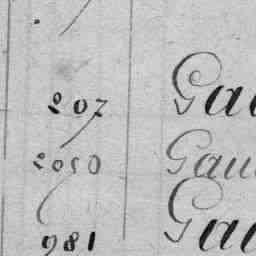 207 Gau
2050 Gau
981 Gau